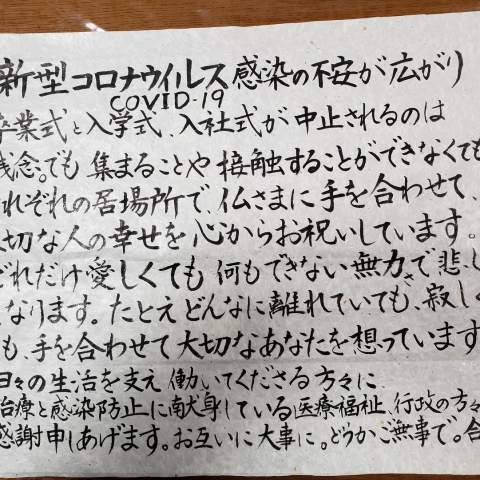 新型コロナウイルス感染の不安が広がり
COVID-19
卒業式と入学式、入社式が中止されるのは
残念。でも集まることや接触することができなくても
れぞれの居場所で、仏さまに手を合わせて、
切な人の幸せを心からお祝いしています。
どれだけ愛しくても何もできない無力さで悲し
なります。たとえどんなに離れていても、寂しく
も、手を合わせて大切なあなたを想っています
日々の生活を支え働いてくださる方々に、
治療と感染防止に献身している医療福祉、行政の方々
感謝申しあげます。お互いに大事に。どうかご無事で。合